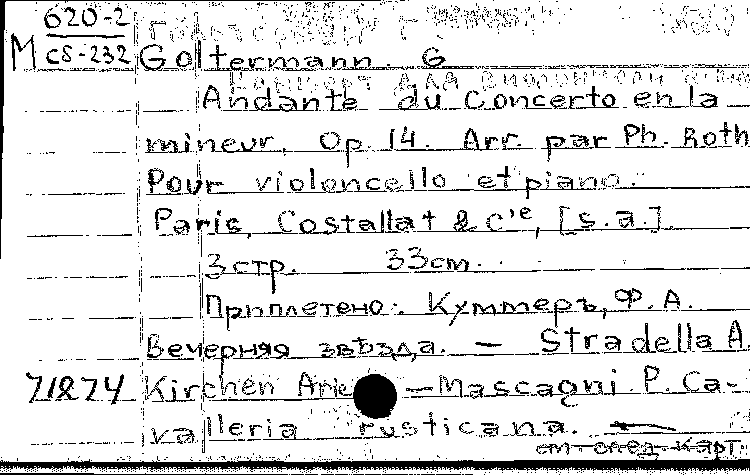 620-2
M CS-232 Goltermann. G
Andante du Concerto en la
mineur, Op. 14. Arr. par Ph. Roth
Pour violoncello et piano.
Paris, Costallat & Cie, [s.a.]
3 стр. 33 cm.
Приплетено: Куммеръ, Ф. А.
Вечерняя звѣзда. — Stradella A.
71874 Kirchen Arie — Mascagni P. Ca-
valleria rusticana. —
см. след. карт.